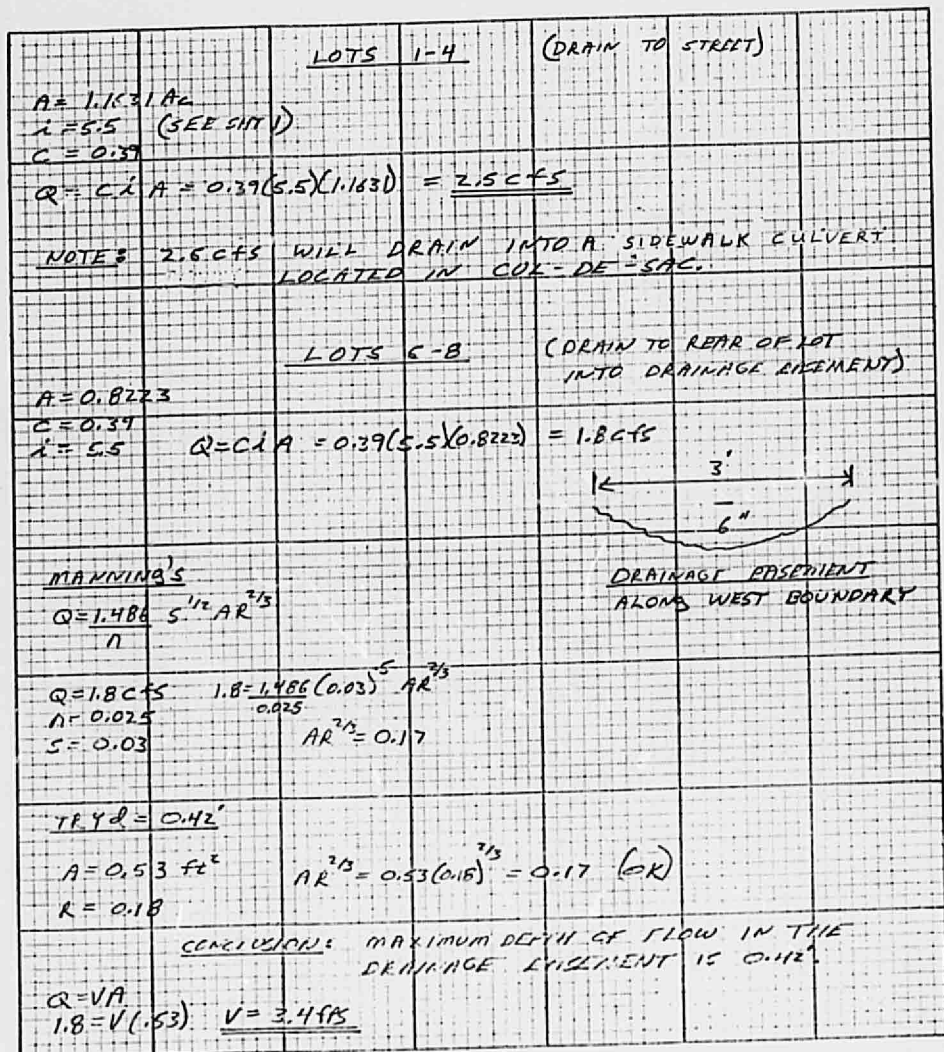 LOTS 1-4 (DRAIN TO STREET)
A = 1.1631 Ac
i = 5.5 (SEE SHT 1)
C = 0.39
Q = C i A = 0.39(5.5)(1.1631) = 2.5 cfs
NOTE: 2.5 cfs WILL DRAIN INTO A SIDEWALK CULVERT
LOCATED IN COL-DE-SAC.
LOTS 5-8 (DRAIN TO REAR OF LOT
INTO DRAINAGE EASEMENT)
A = 0.8223
C = 0.39
i = 5.5 Q = C i A = 0.39(5.5)(0.8223) = 1.8 cfs
3'
6"
MANNING'S
DRAINAGE EASEMENT
ALONG WEST BOUNDARY
Q = 1.486/n S^1/2 AR^2/3
Q = 1.8 cfs 1.8 = 1.486/0.025 (0.03)^.5 AR^2/3
n = 0.025
S = 0.03 AR^2/3 = 0.17
TRY d = 0.42'
A = 0.53 ft² AR^2/3 = 0.53(0.18)^2/3 = 0.17 (OK)
R = 0.18
CONCLUSION: MAXIMUM DEPTH OF FLOW IN THE
DRAINAGE EASEMENT IS 0.42'.
Q = VA
1.8 = V(.53) V = 3.4 fps